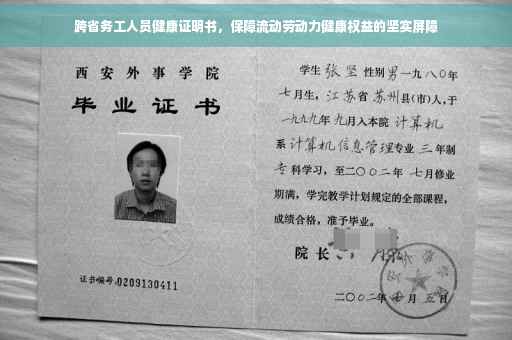 跨省务工人员健康证明书，保障流动劳动力健康权益的坚实屏障
西安外事学院
毕业证书
证书编号:0209130411
学生 张坚 性别 男 一九八〇年
七月生，江苏省 苏州县(市)人，于
一九九九年 九月入本院 计算机
系 计算机信息管理专业 三 年制
专 科学习，至二〇〇二年 七月修业
期满，学完教学计划规定的全部课程，
成绩合格，准予毕业。
院 长
二〇〇二年 月 五日